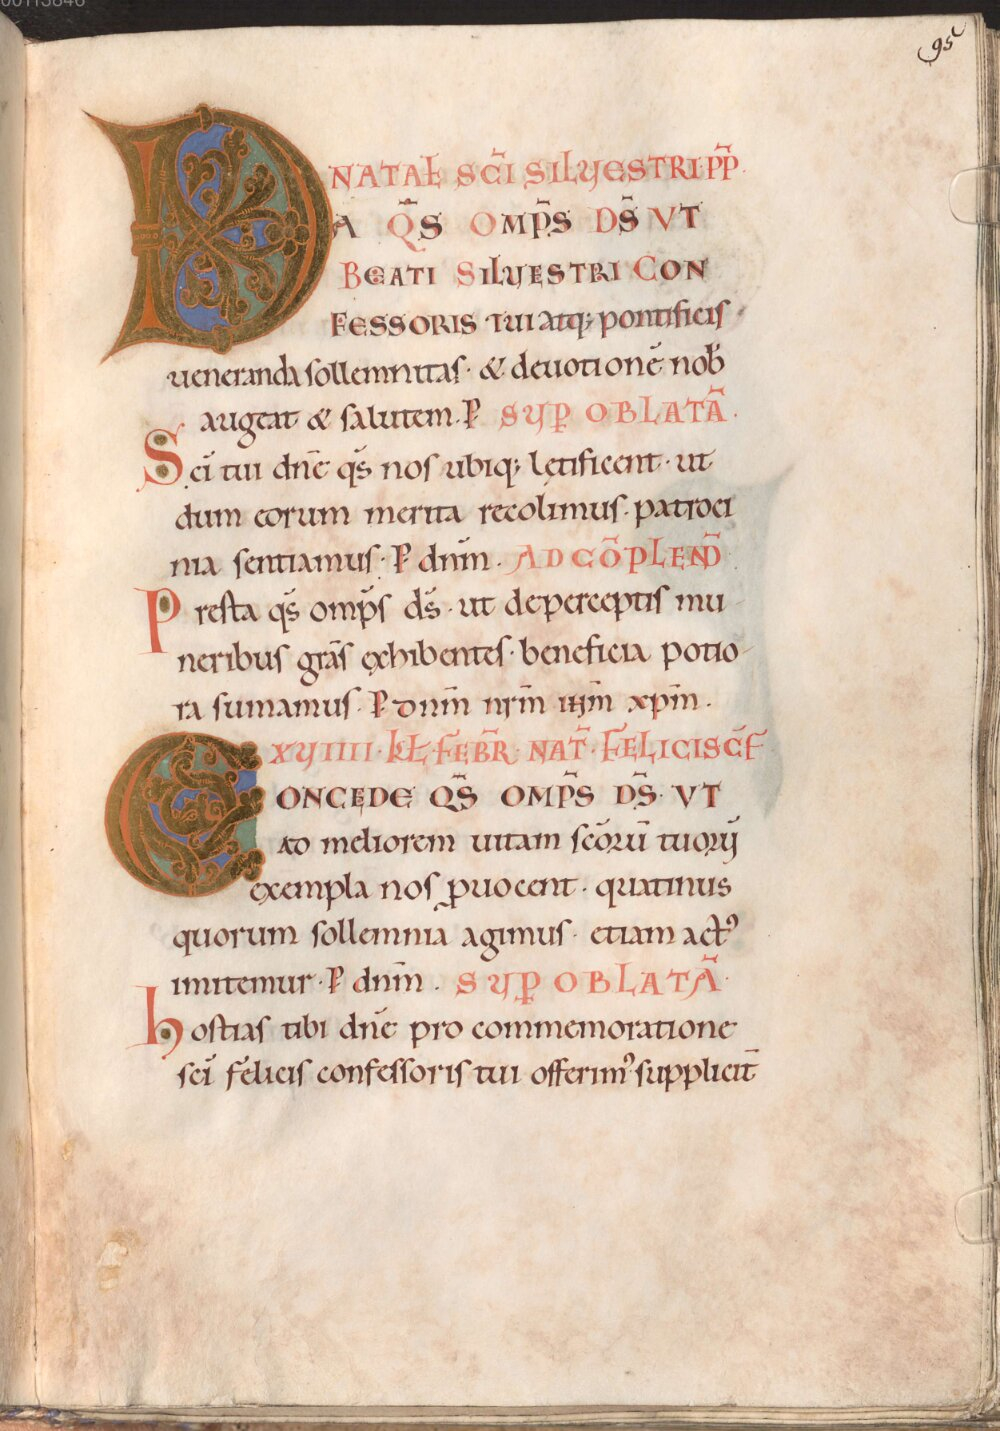 95
NATAŁ SC̄I SILVESTRI PP̄
DA Q̄S OMP̄S DS̄ VT
BEATI SILVESTRI CON
FESSORIS tui atq; pontificis
ueneranda sollemnitas · & deuotionē nob̄
augeat & salutem. P SVP OBLATĀ.
Sc̄i tui dn̄e q̄s nos ubiq; lętificent · ut
dum eorum merita recolimus · patroci
nia sentiamus · P dn̄m. AD CŌPLEND̄
Presta q̄s omp̄s ds̄ · ut de perceptis mu
neribus grās exhibentes · beneficia potio
ra sumamus · P dn̄m nr̄m ihm̄ xpm̄.
XVIIII · KŁ FEBR̄ · NAT̄ · FELICIS CF̄
CONCEDE Q̄S OMP̄S DS̄ · VT
ad meliorem uitam sc̄orū tuorū
exempla nos ꝓuocent · quatinus
quorum sollemnia agimus · etiam act᾽
imitemur · P dn̄m. SVP OBLATĀ ·
hostias tibi dn̄e pro commemoratione
sc̄i felicis confessoris tui offerim᾽ suppliciт̄